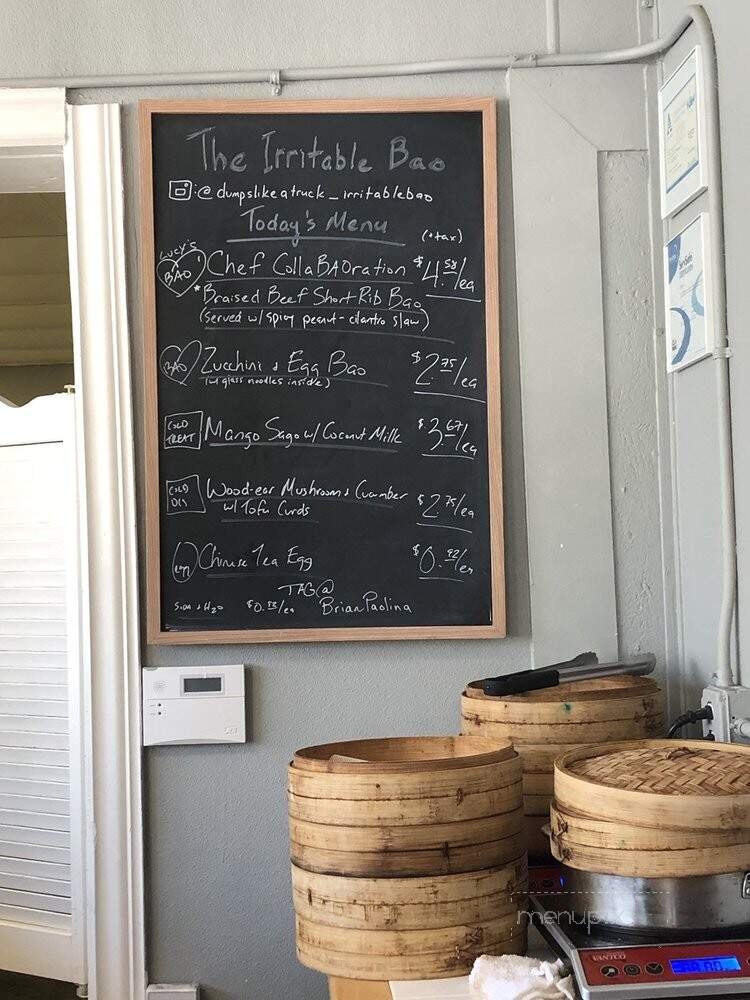 The Irritable Bao
:@dumpslikeatruck_irritablebao
Today's Menu
(+tax)
Lucy's
BAO
Chef CollaBAOration $4.58/ea
*Braised Beef Short Rib Bao
(served w/ spicy peanut-cilantro slaw)
BAO
Zucchini & Egg Bao $2.75/ea
(w/ glass noodles inside)
COLD
TREAT
Mango Sago w/ Coconut Milk $3.67/ea
COLD
Wood-ear Mushroom & Cucumber
w/ Tofu Curds $2.75/ea
Chinese Tea Egg $0.92/ea
TAG@
BrianPaolina
Soda & H2O
menup
AVANTCO